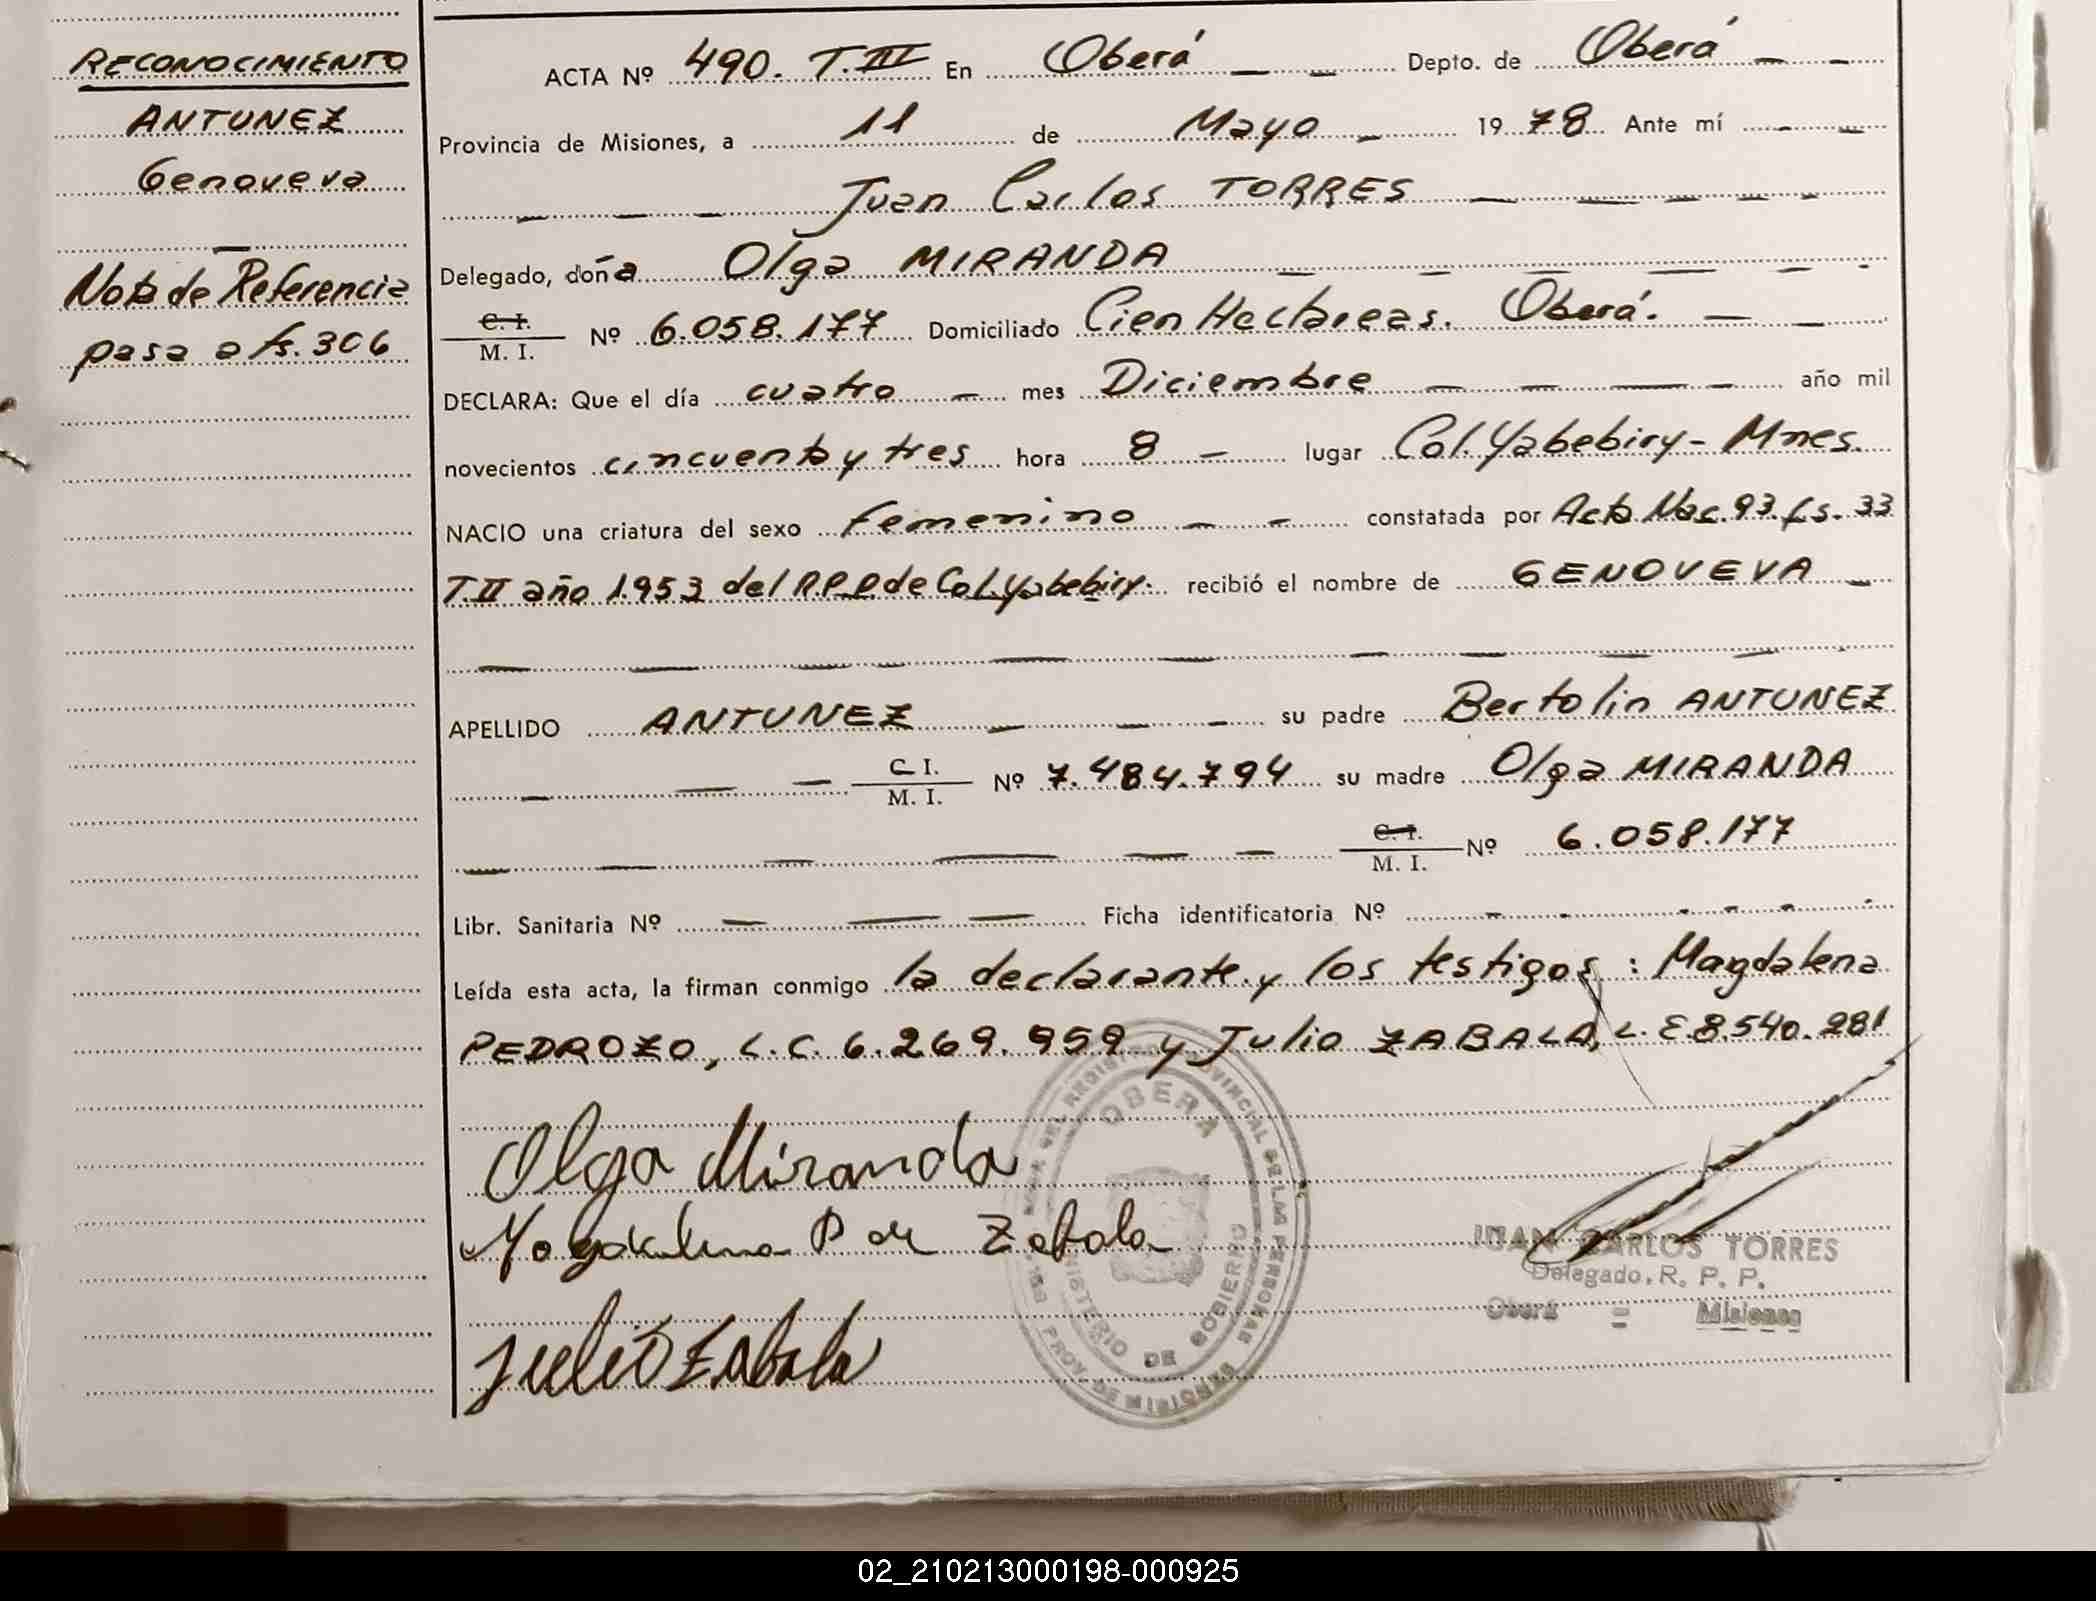 RECONOCIMIENTO
ANTUNEZ
Genoveva
Nota de Referencia
pasa a fs. 306
ACTA Nº 490. T.III En Oberá Depto. de Oberá
Provincia de Misiones, a 11 de Mayo 1978 Ante mí
Juan Carlos TORRES
Delegado, doña Olga MIRANDA
C. I.
M. I. Nº 6.058.177 Domiciliado Cien Hectareas. Oberá.
DECLARA: Que el día cuatro mes Diciembre año mil
novecientos cincuenta y tres hora 8 lugar Col. Yabebiry - Mnes.
NACIO una criatura del sexo femenino constatada por Acta Nac. 93. fs. 33
T.II año 1.953 del R.P.P de Col. Yabebiry. recibió el nombre de GENOVEVA
APELLIDO ANTUNEZ su padre Bertolin ANTUNEZ
C I.
M. I. Nº 7.484.794 su madre Olga MIRANDA
C. I.
M. I. Nº 6.058.177
Libr. Sanitaria Nº Ficha identificatoria Nº
Leída esta acta, la firman conmigo la declarante y los testigos : Magdalena
PEDROZO, L.C. 6.269.959 y Julio ZABALA, L.E 8.540.281
Olga Miranda
Magdalena P de Zabala
Julio Zabala
OBERA
MINISTERIO DE GOBIERNO
PROV. DE MISIONES
JUAN CARLOS TORRES
Delegado, R. P. P.
Oberá - Misiones
02_210213000198-000925